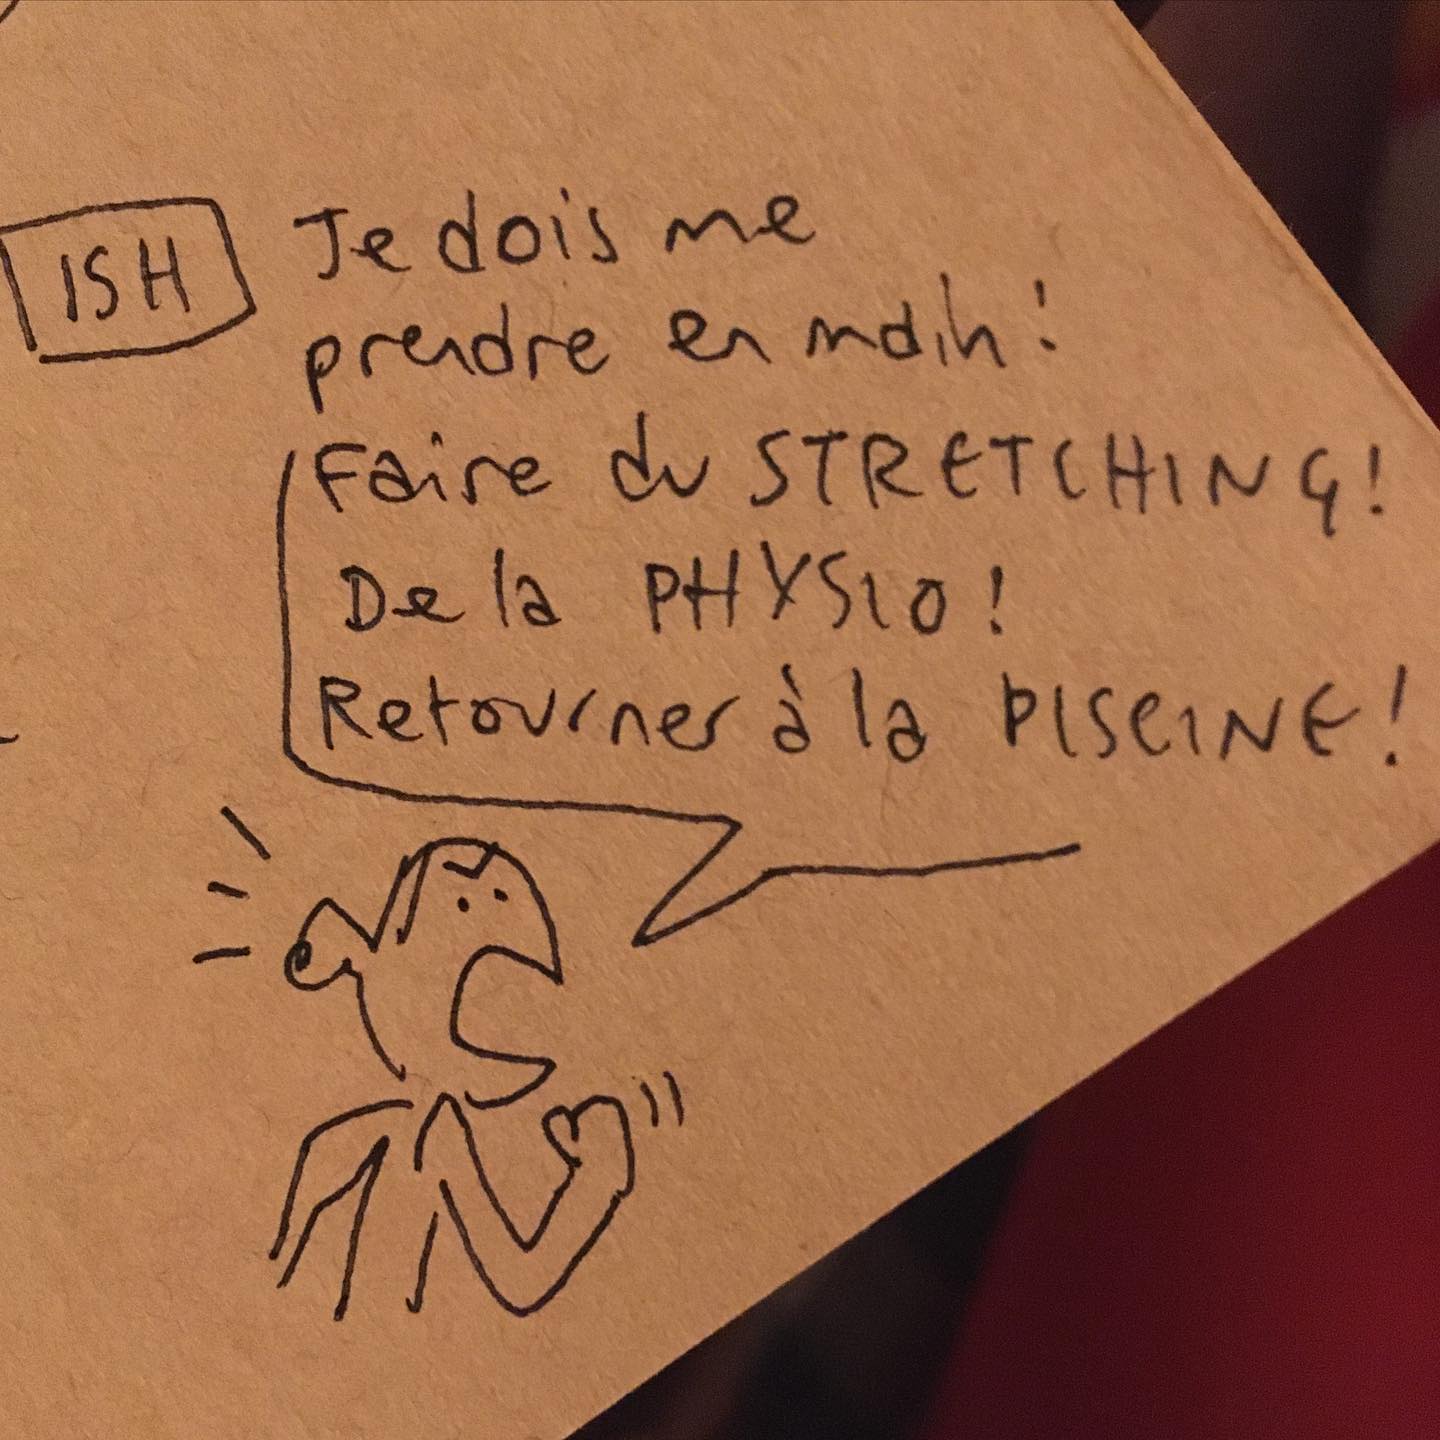 15H
Je dois me
prendre en main!
Faire du STRETCHING!
De la PHYSIO!
Retourner à la PISCINE!